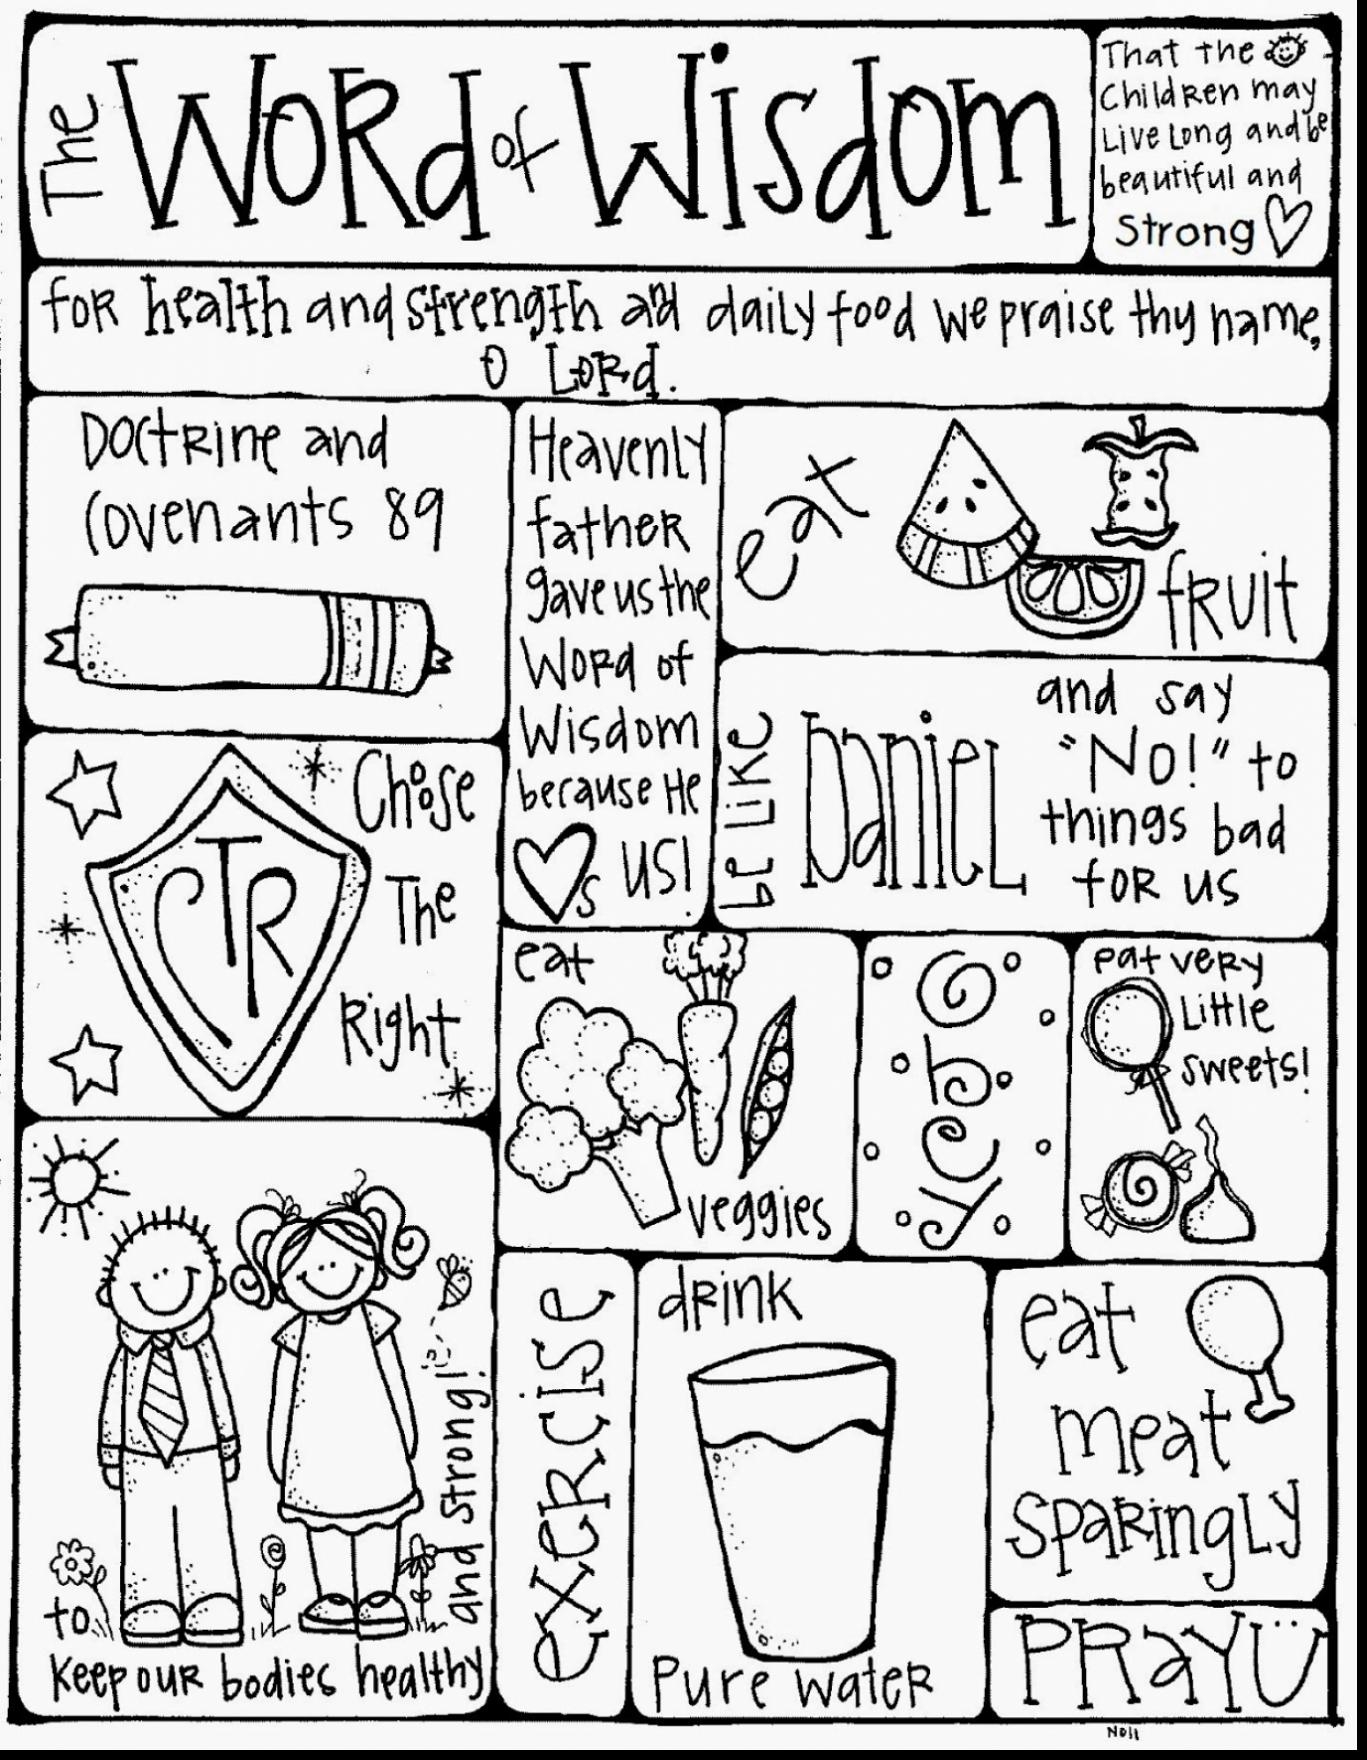 The Word of Wisdom
That the
Children may
Live Long and be
beautiful and
Strong
for health and strength and daily food we praise thy name,
O Lord.
Doctrine and
Covenants 89
Heavenly
father
gave us the
Word of
Wisdom
because He
s us!
eat
fruit
be like Daniel
and say
"No!" to
things bad
for us
CTR
Choose
The
Right
eat
veggies
yCba6
eat very
Little
sweets!
to
Keep our bodies healthy
and strong!
exercise
drink
Pure water
eat
meat
sparingly
PRAY